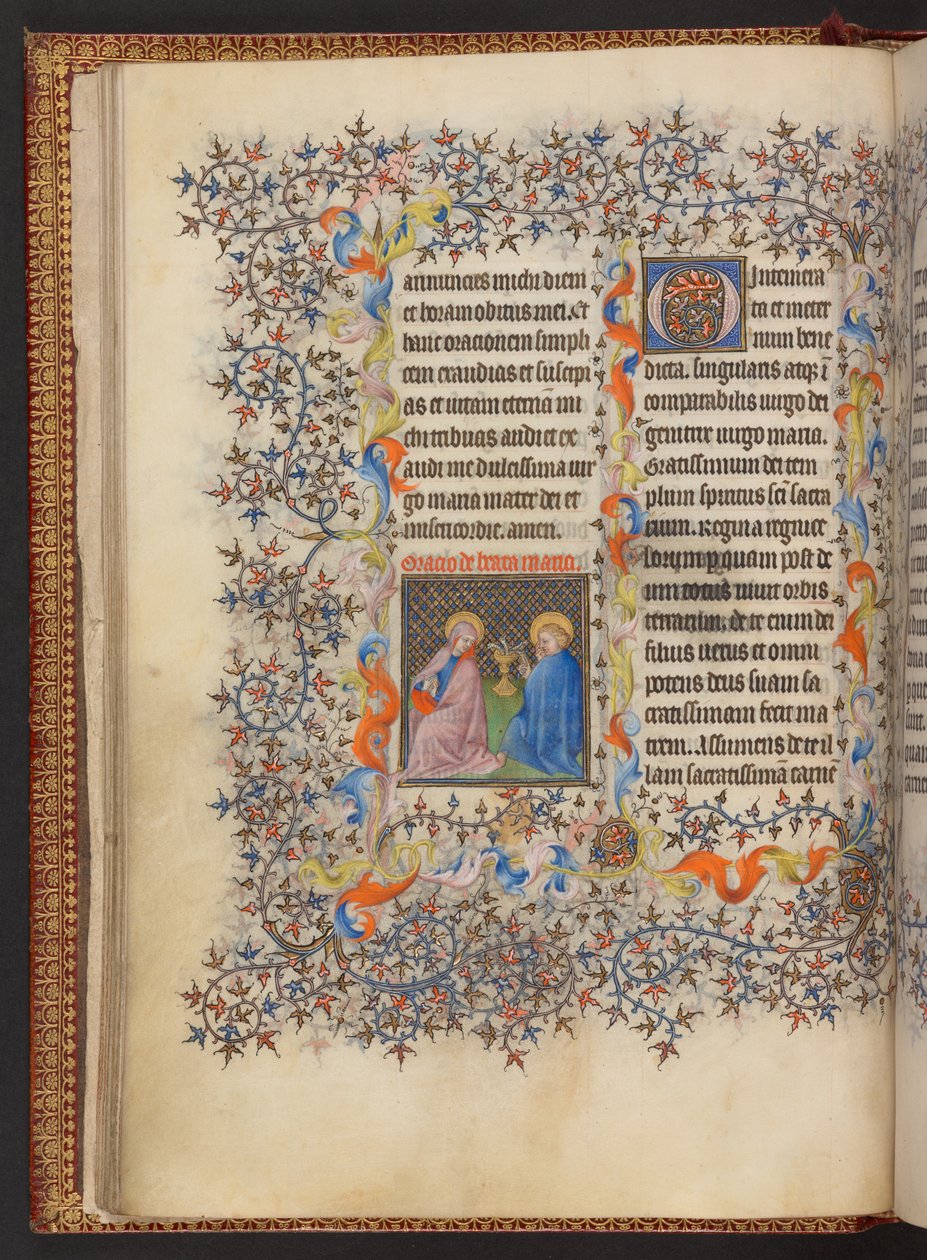 annuncies michi diem
et horam obitus mei. Et
hanc orationem simpli
cem exaudias et suscipi
as et uitam eternā mi
chi tribuas audi et ex
audi me dulcissima uir
go maria mater dei et
misericordie. amen.
Oracio de beata maria.
O Intemera
ta et in eter
num bene
dicta. singularis atqꝫ ī
comparabilis uirgo dei
genitrix uirgo maria.
Gratissimum dei tem
plum spiritus sc̄i sacra
rium. Regina regni ce
lorum p quam post de
um totus uiuit orbis
terrarum. de te enim dei
filius uerus et omni
potens deus suam sa
cratissimam fecit ma
trem. Assumens de te il
lam sacratissimā carnē